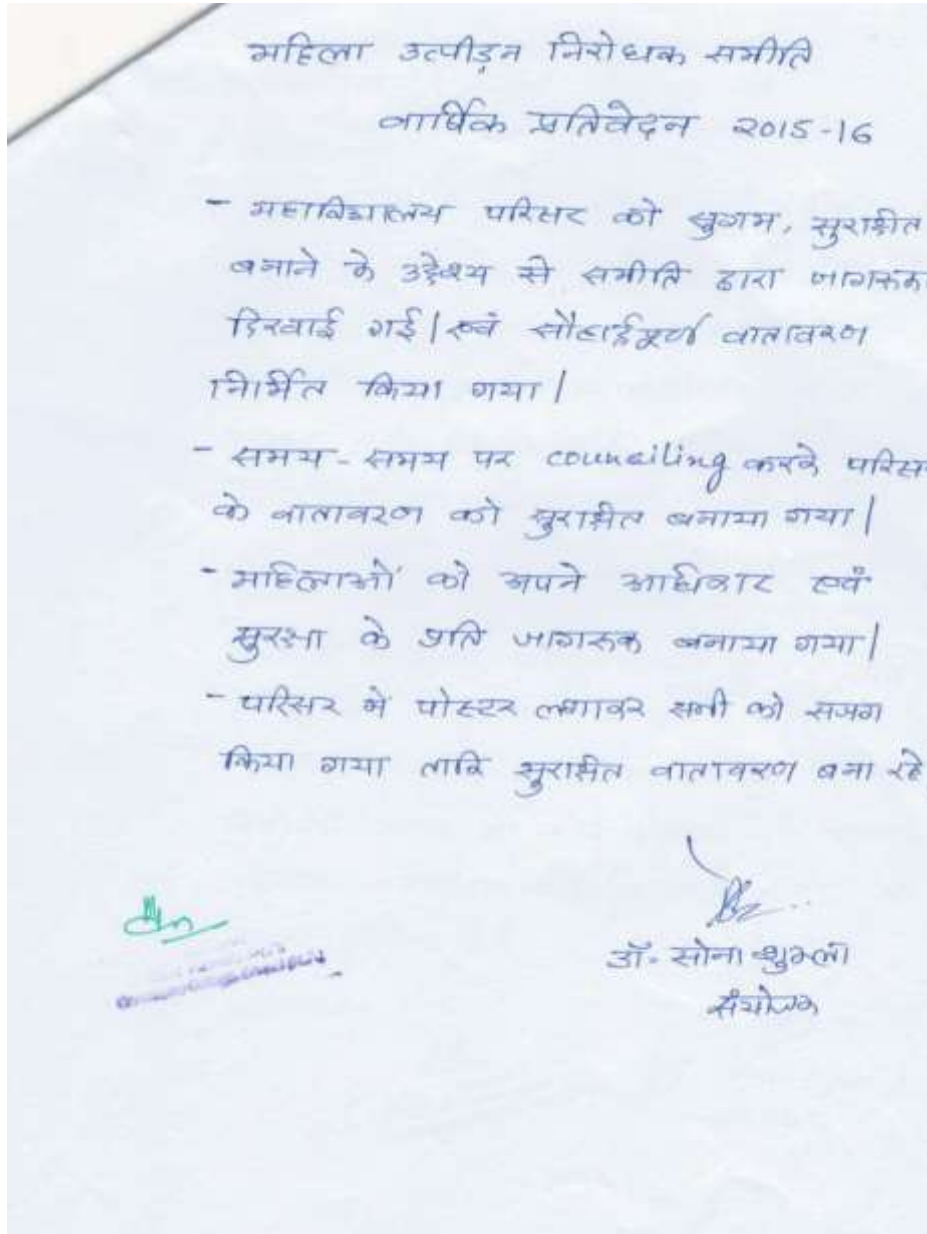 महिला उत्पीड़न निरोधक समीति
वार्षिक प्रतिवेदन 2015-16
- महाविद्यालय परिसर को सुगम, सुरक्षीत
बनाने के उद्देश्य से समीति द्वारा जागरूक
दिखाई गई। एवं सौहार्द्रपूर्ण वातावरण
निर्मित किया गया।
- समय-समय पर counciling करके परिसर
के वातावरण को सुरक्षित बनाया गया।
- महिलाओं को अपने अधिकार एवं
सुरक्षा के प्रति जागरूक बनाया गया।
- परिसर में पोस्टर लगाकर सभी को सजग
किया गया ताकि सुरक्षित वातावरण बना रहे
डॉ. सोना शुक्ला
संयोजक